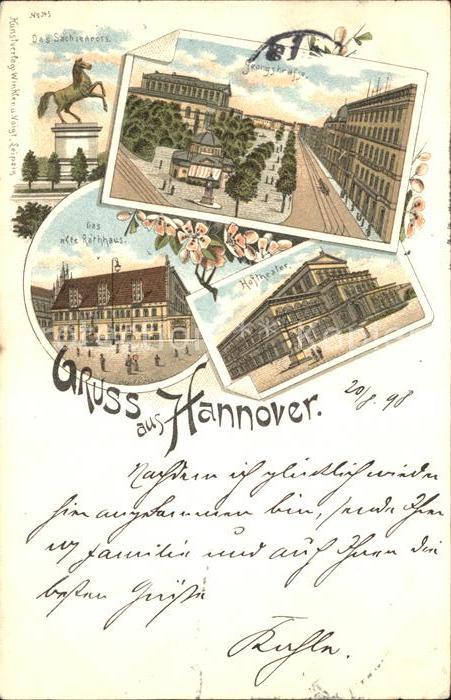 No 245
Kunstverlag Winkler u. Voigt, Leipzig.
Das Sachsenross.
Georgstrasse.
Das
alte Rathhaus.
Hoftheater.
GRUSS
aus HANNOVER.
20/8. 98
Nachdem ich glücklich wieder
hier angekommen bin, sende Ihnen
u Familie und auf Ihnen die
besten Grüße
Kuhle.